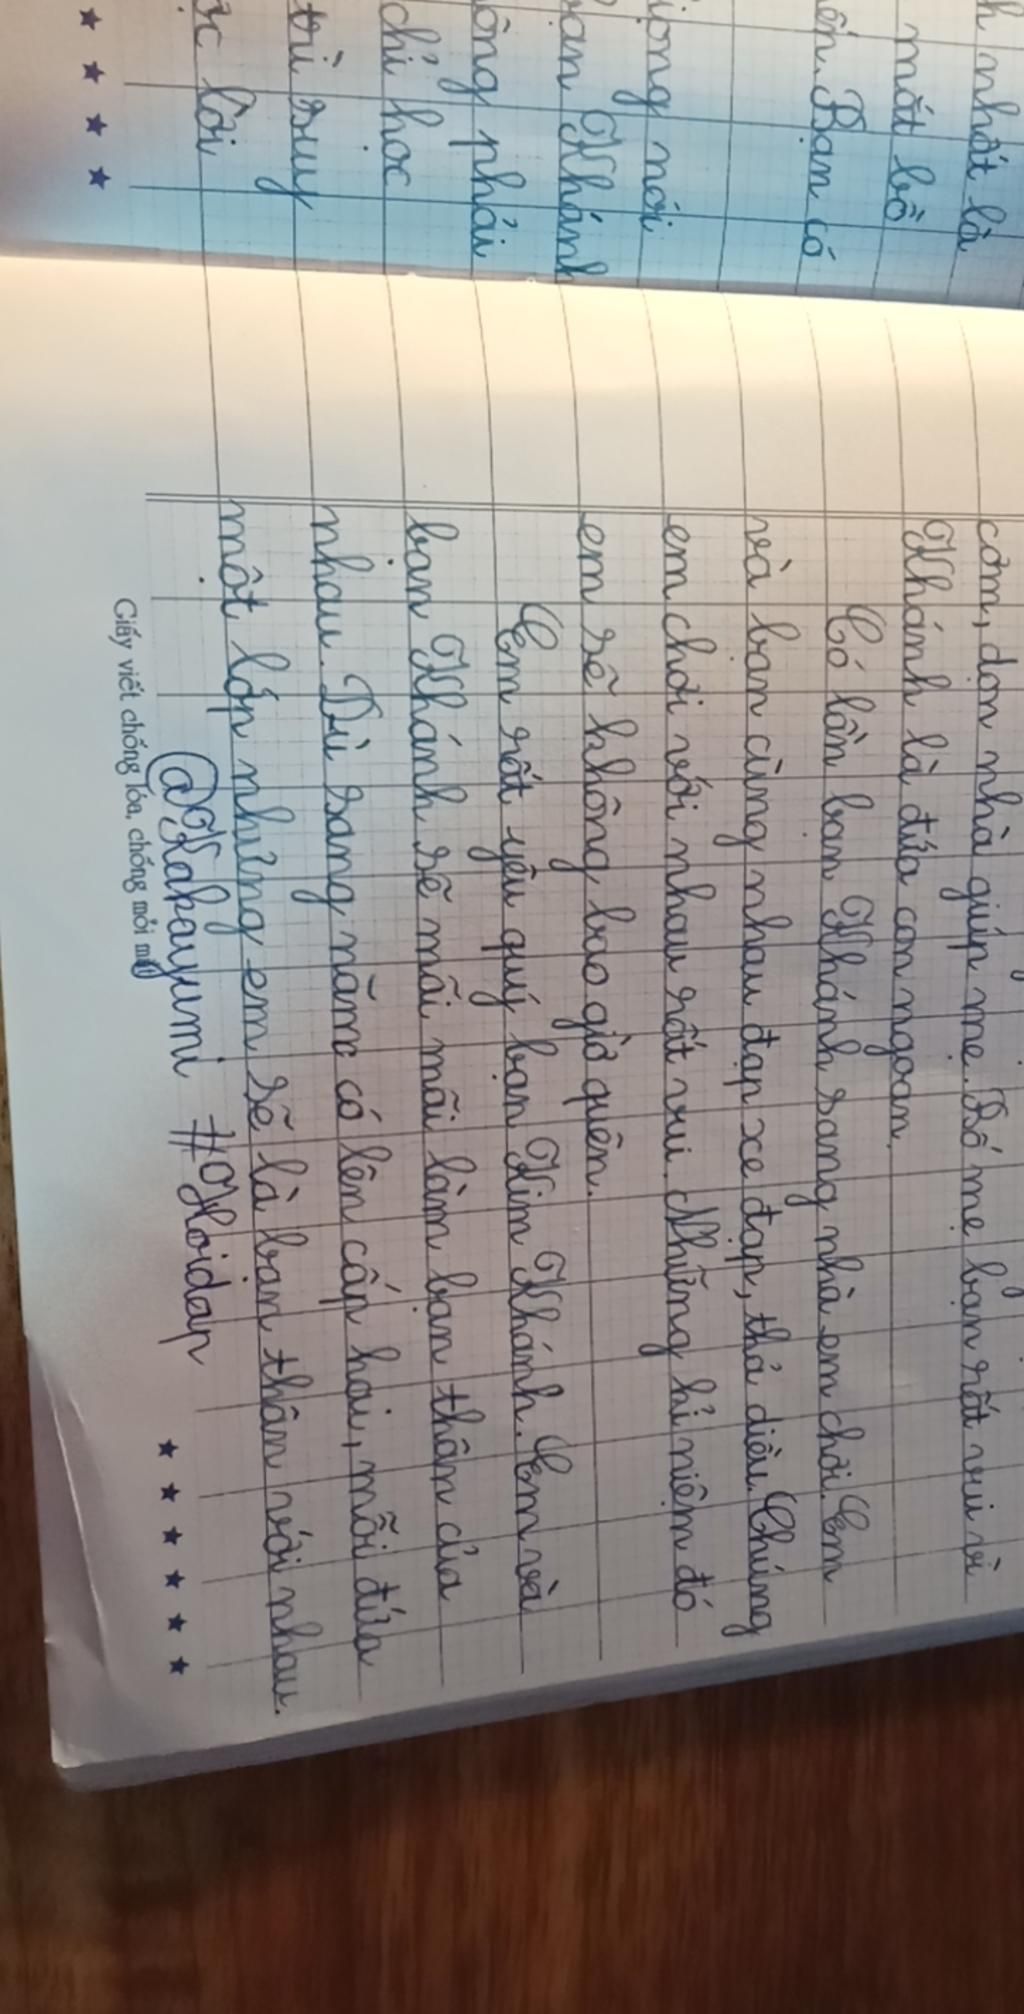 h nhất là
mắt bồ
ến. Bạn có
iọng nói
bạn Khánh
ông phải
chỉ học
trì suy
ực lời
cơm, dọn nhà giúp mẹ. Bố mẹ bạn rất vui vì
Khánh là đứa con ngoan.
Có lần bạn Khánh sang nhà em chơi. Em
và bạn cùng nhau đạp xe đạp, thả diều. Chúng
em chơi với nhau rất vui. Những kỉ niệm đó
em sẽ không bao giờ quên.
Em rất yêu quý bạn Kim Khánh. Em và
bạn Khánh sẽ mãi mãi làm bạn thân của
nhau. Dù sang năm có lên cấp hai, mỗi đứa
một lớp nhưng em sẽ là bạn thân với nhau.
@Kakayumi #Hoidap
Giấy viết chống lóa, chống mỏi